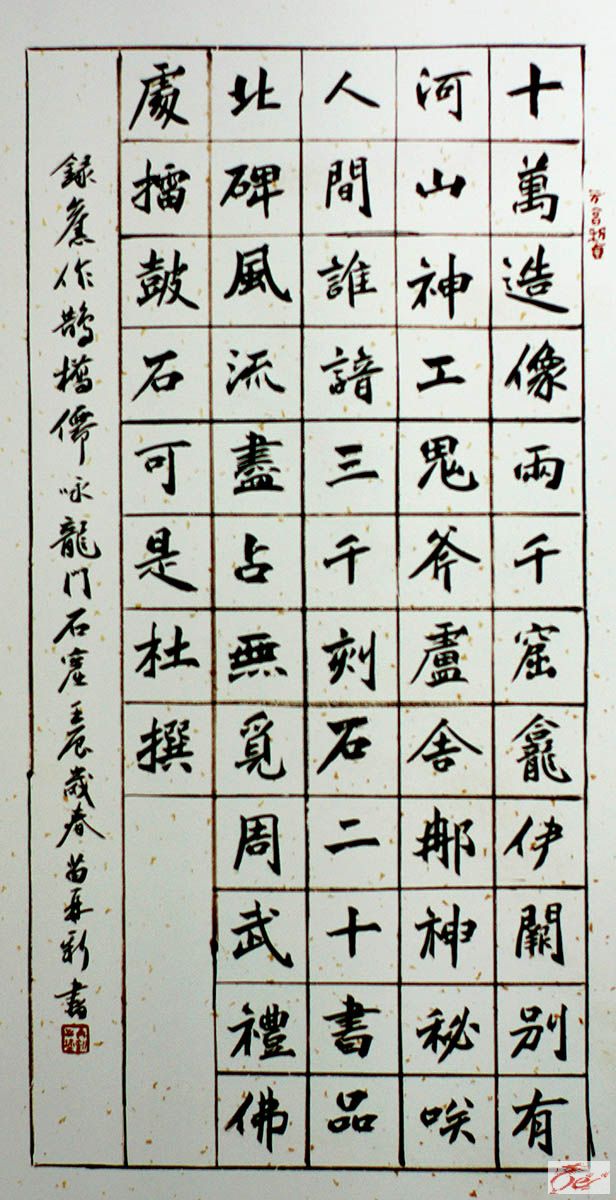 十萬造像兩千窟龕伊闕別有
河山神工鬼斧盧舍那神秘唉
人間誰諳三千刻石二十書品
北碑風流盡占無覓周武禮佛
處擂鼓石可是杜撰
錄舊作鵲橋僊咏龍门石窟壬辰歲春苗再新書